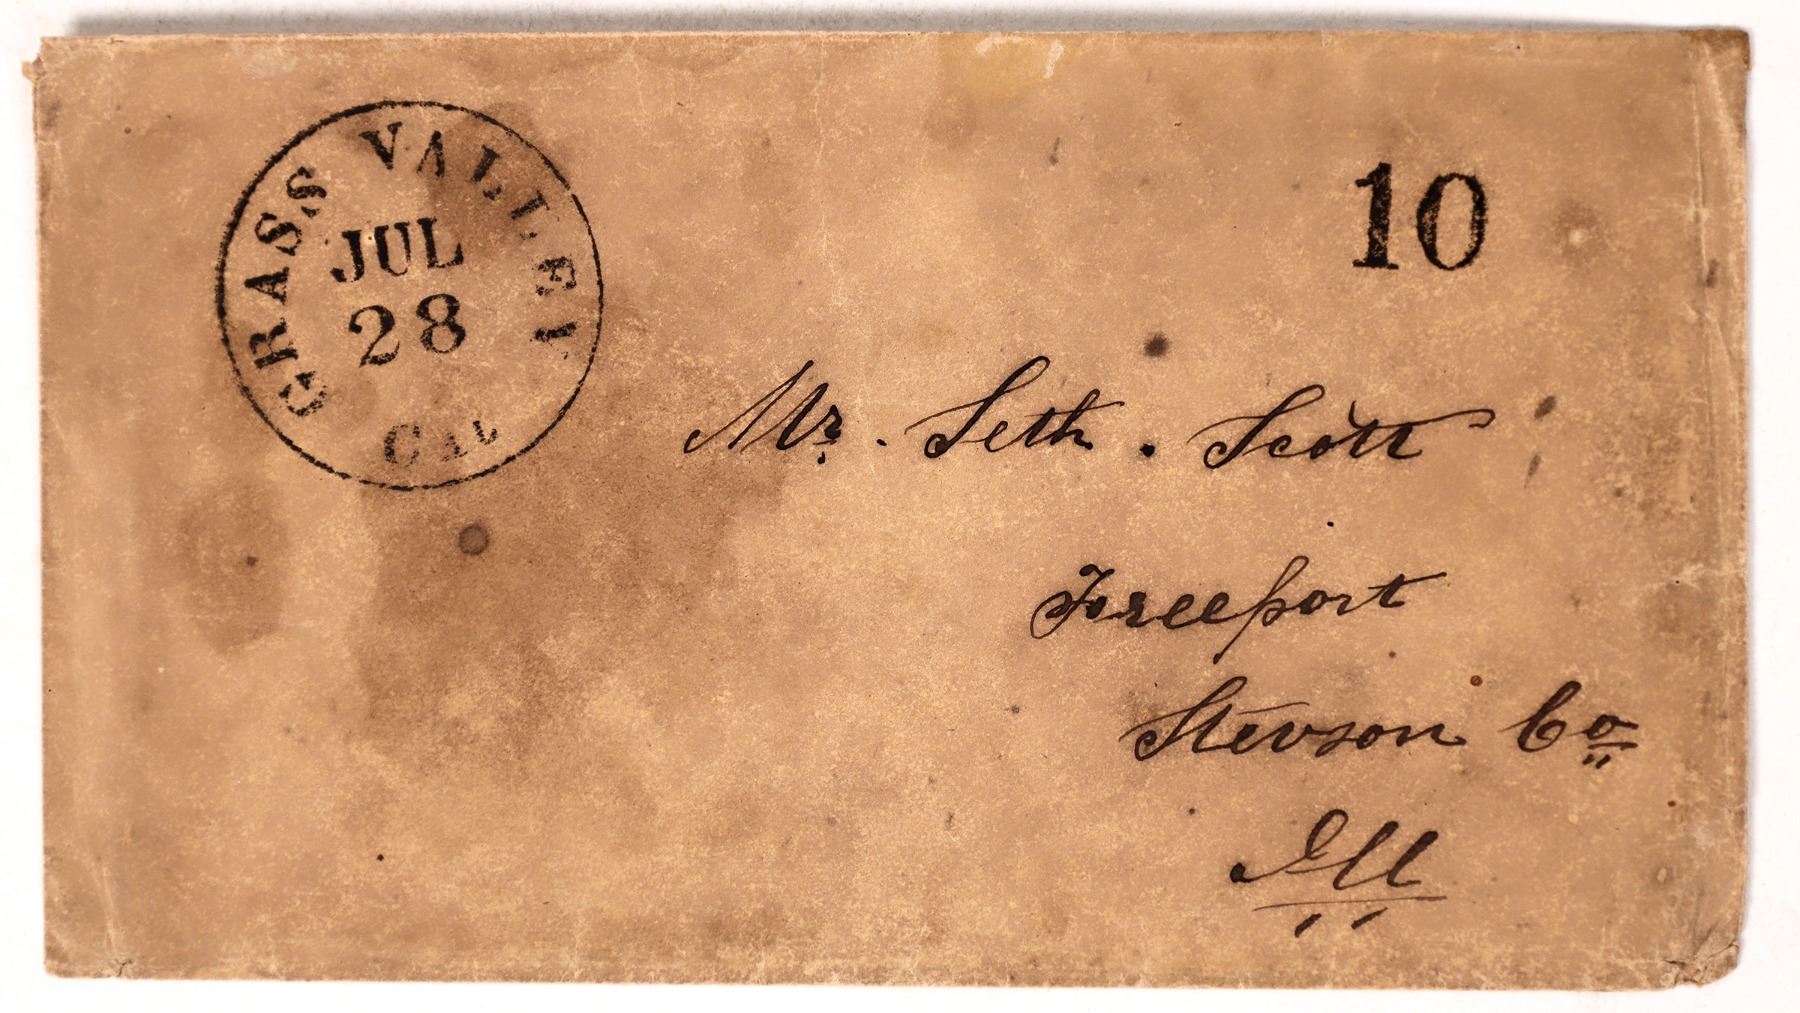 GRASS VALLEY
JUL
28
CAL
10
Mr. Seth. Scott
Freeport
Stevson Co
Ill